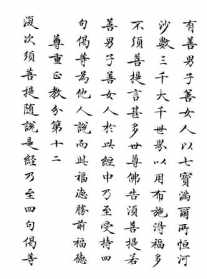 有善男子善女人以七寶滿爾所恒河
沙數三千大千世界以用布施得福多
不須菩提言甚多世尊佛告須菩提若
善男子善女人於此經中乃至受持四
句偈等為他人說而此福德勝前福德
尊重正教分第十二
復次須菩提隨說是經乃至四句偈等